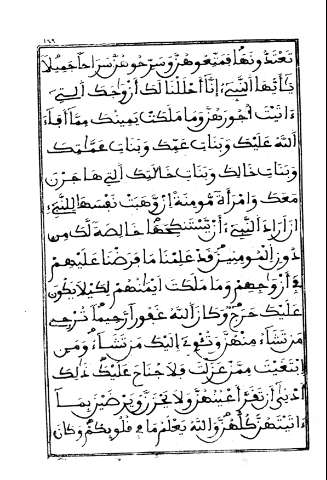 تَعْتَدُّونَهَا فَمَتِّعُوهُنَّ وَسَرِّحُوهُنَّ سَرَاحاً جَمِيلاً
يَٰأَيُّهَا النَّبِيءُ اِنَّا أَحْلَلْنَا لَكَ أَزْوَٰجَكَ اَلتِي
ءَاتَيْتَ أُجُورَهُنَّ وَمَا مَلَكَتْ يَمِينُكَ مِمَّا أَفَاءَ
اَللَّهُ عَلَيْكَ وَبَنَاتِ عَمِّكَ وَبَنَاتِ عَمَّٰتِكَ
وَبَنَاتِ خَالِكَ وَبَنَاتِ خَٰلَٰتِكَ اَلتِي هَاجَرْنَ
مَعَكَ وَامْرَأَةً مُّومِنَةً اِنْ وَهَبَتْ نَفْسَهَا لِلنَّبِيءِ
انَ اَرَادَ اَلنَّبِيءُ أَنْ يَّسْتَنكِحَهَا خَالِصَةً لَّكَ مِن
دُونِ اِلْمُومِنِينَ قَدْ عَلِمْنَا مَا فَرَضْنَا عَلَيْهِمْ
فِي أَزْوَٰجِهِمْ وَمَا مَلَكَتَ اَيْمَٰنُهُمْ لِكَيْلَا يَكُونَ
عَلَيْكَ حَرَجٌ وَكَانَ اَللَّهُ غَفُوراً رَّحِيماً تُرْجِي
مَن تَشَاءُ مِنْهُنَّ وَتُئْوِي إِلَيْكَ مَن تَشَاءُ وَمَنِ
اِبْتَغَيْتَ مِمَّنْ عَزَلْتَ فَلَا جُنَاحَ عَلَيْكَ ذَٰلِكَ
أَدْنَىٰ أَن تَقَرَّ أَعْيُنُهُنَّ وَلَا يَحْزَنَّ وَيَرْضَيْنَ بِمَا
ءَاتَيْتَهُنَّ كُلُّهُنَّ وَاللَّهُ يَعْلَمُ مَا فِي قُلُوبِكُمْ وَكَانَ